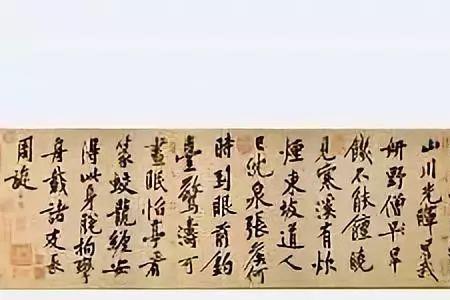 山川光暉為我
妍野僧早
飢不能饘曉
見寒溪有炊
煙東坡道人
已沈泉張侯何
時到眼前釣
臺驚濤可
晝眠怡亭看
篆蛟龍纏安
得此身脫拘攣
舟載諸友長
周旋